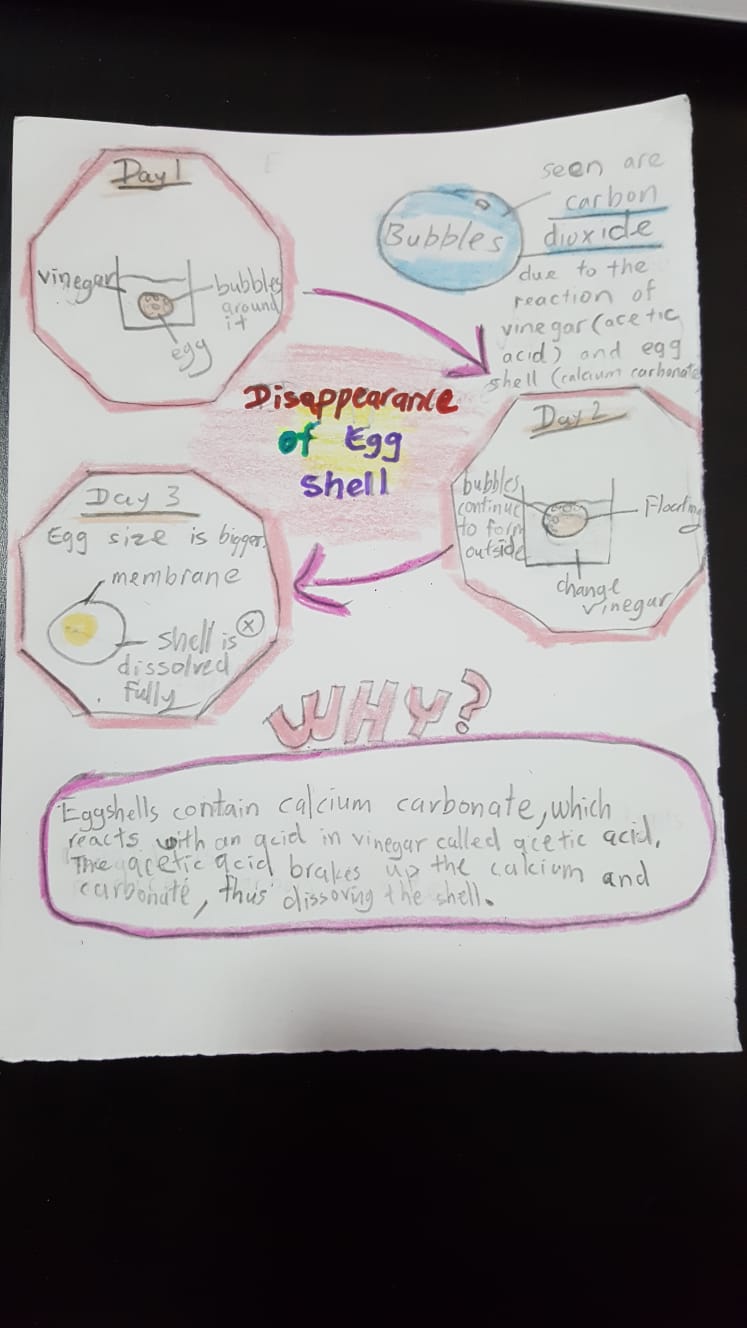 Day 1
vinegar
bubbles
around
it
egg
Bubbles
seen are
carbon
dioxide
due to the
reaction of
vinegar (acetic
acid) and egg
shell (calcium carbonate
Disappearance
of Egg
shell
Day 2
bubbles
continue
to form
outside
Floating
change
vinegar
Day 3
Egg size is bigger.
membrane
shell is
dissolved
fully
WHY?
Eggshells contain calcium carbonate, which
reacts with an acid in vinegar called acetic acid.
The acetic acid brakes up the calcium and
carbonate, thus dissoving the shell.